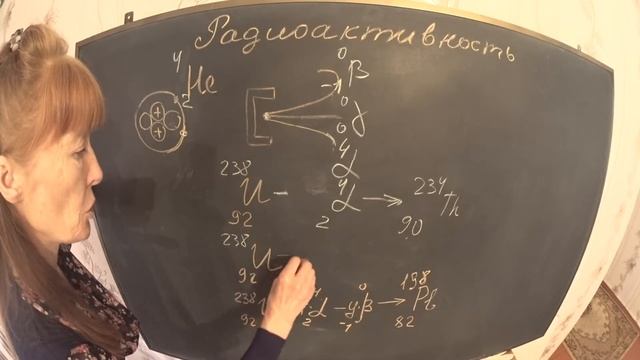 Радиоактивность
4 2 He
0 -1 β
0 0 γ
4 α
238 92 U - 4 2 α → 234 90 Th
238 92 U -
238 92 4 2 α - y· 0 -1 β → 198 82 Pb